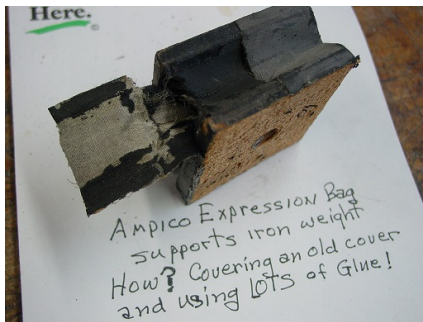 Here.
Ampico Expression Bag
supports iron weight
How? Covering an old cover
and using LOTS of Glue!